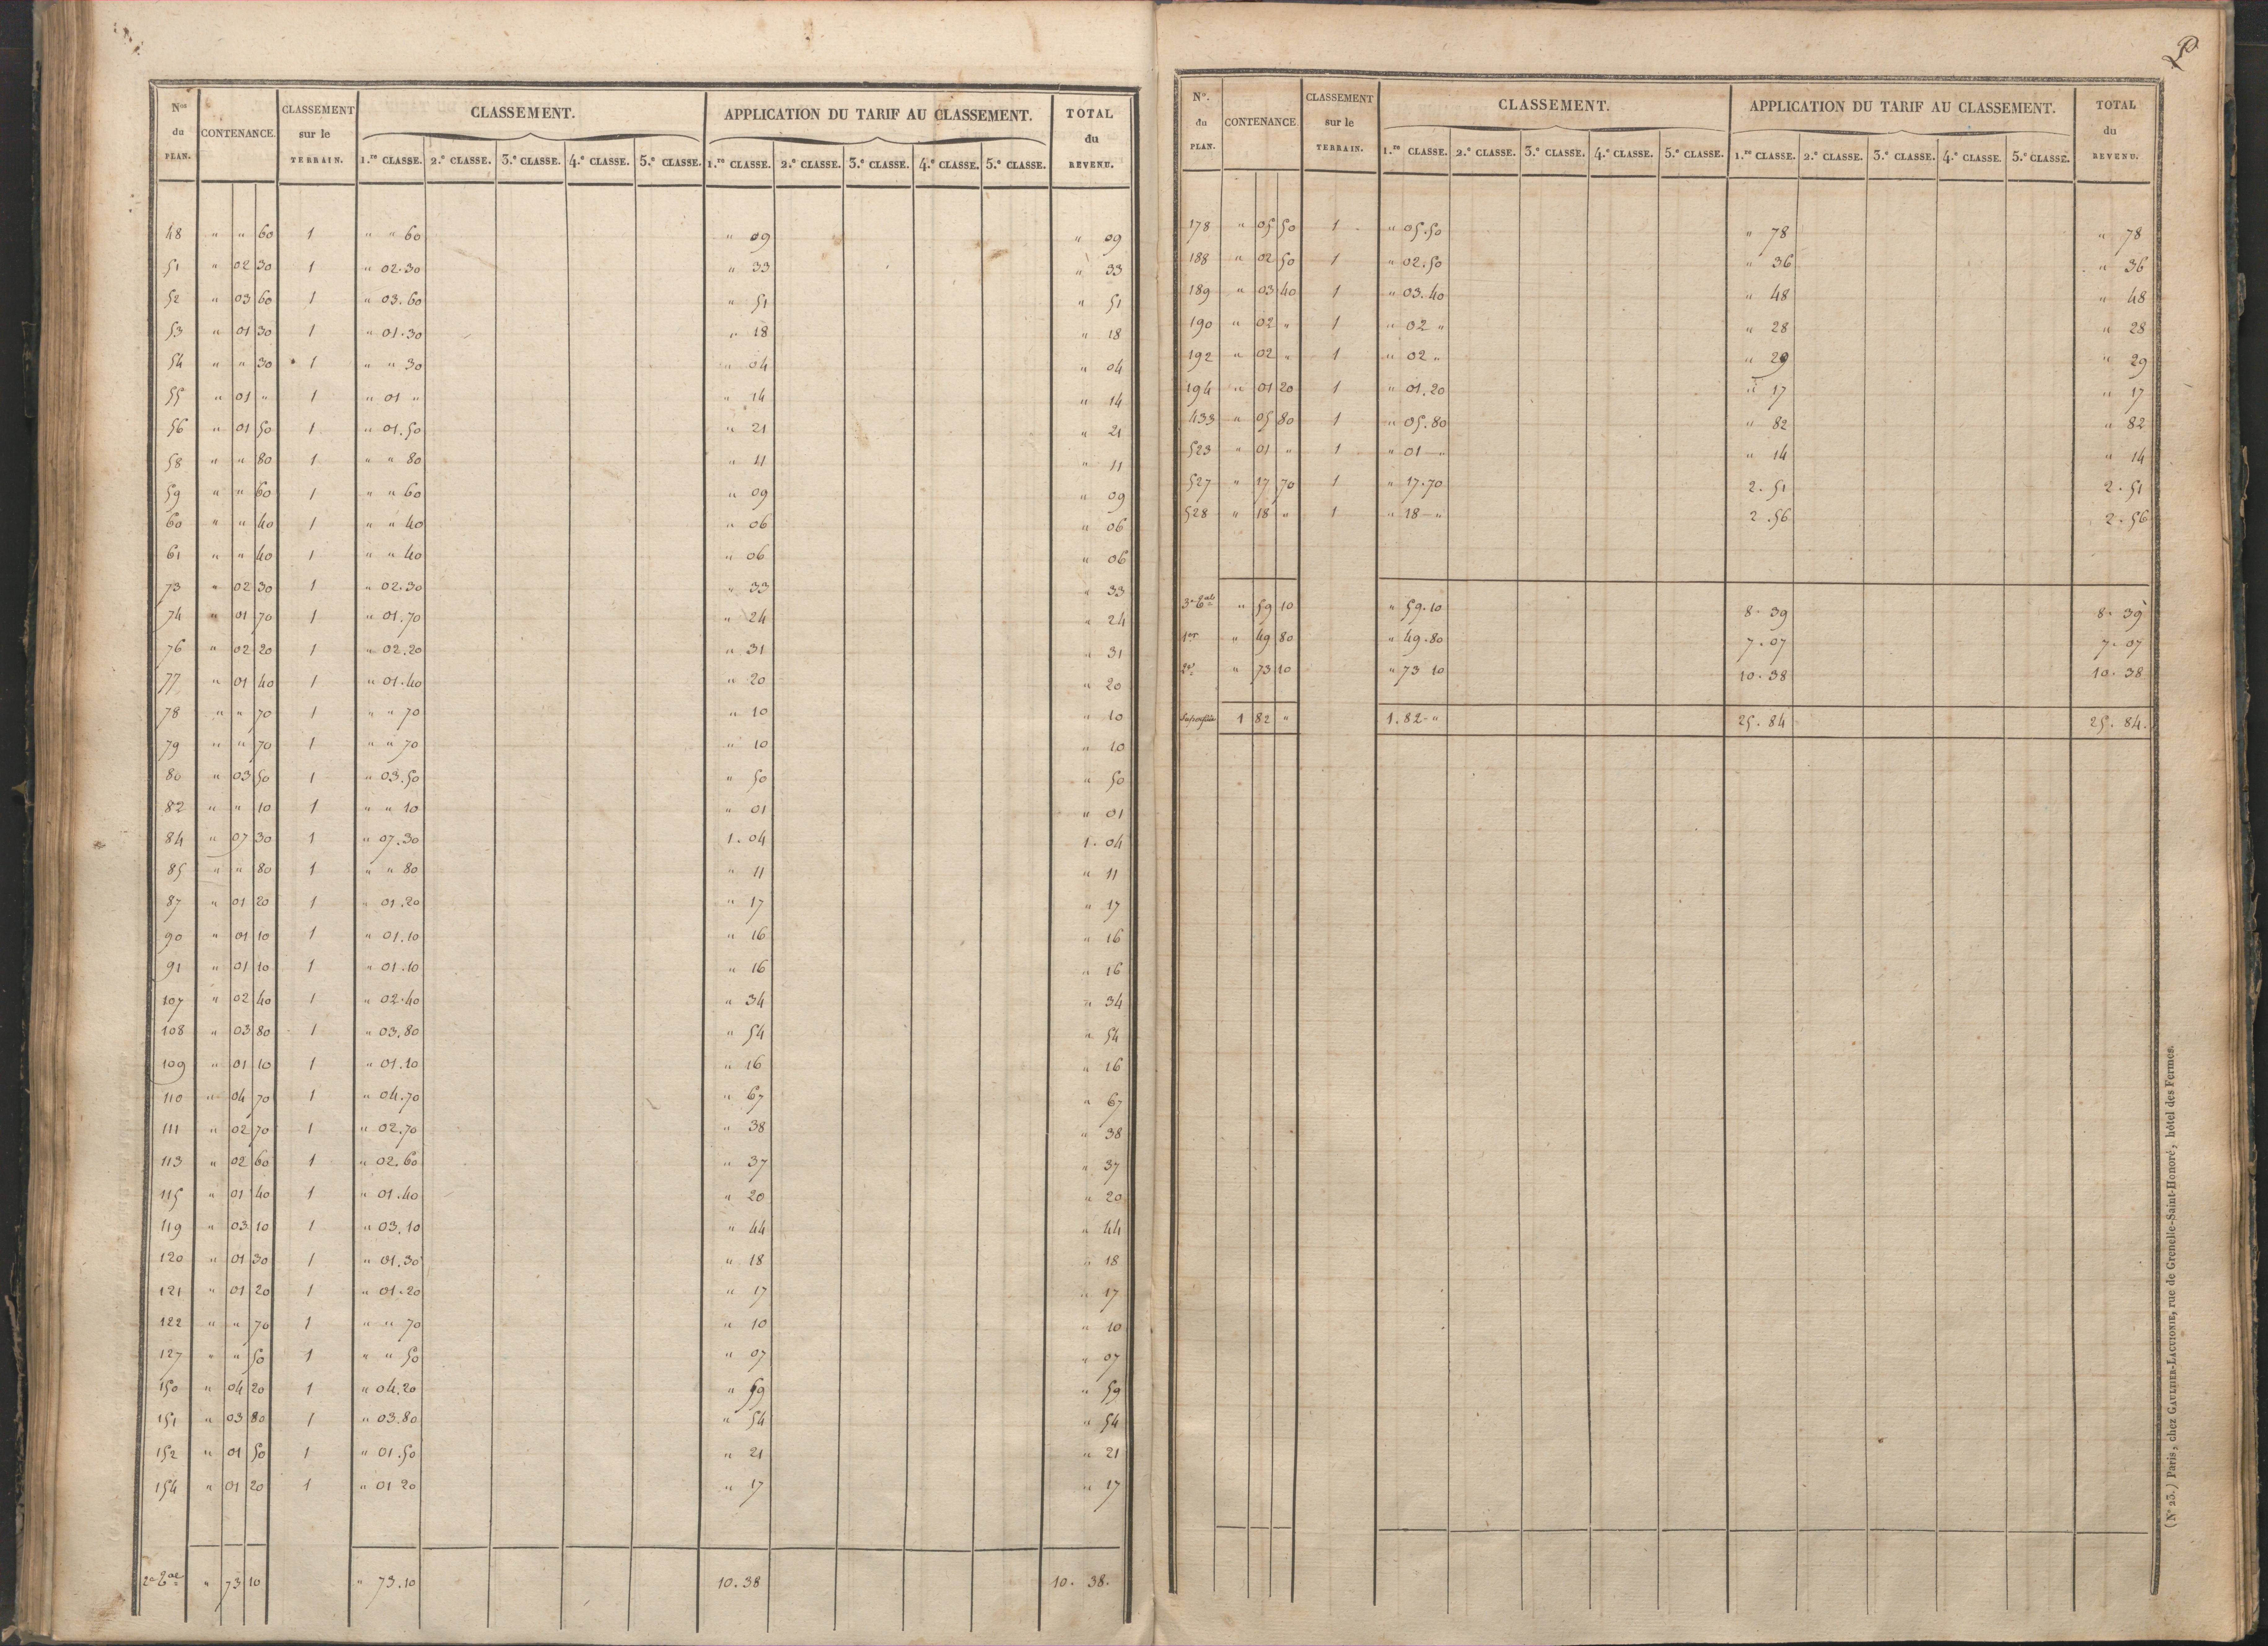 Nos du PLAN. CONTENANCE. CLASSEMENT sur le TERRAIN. CLASSEMENT. APPLICATION DU TARIF AU CLASSEMENT. TOTAL du REVENU.
1.re CLASSE. 2.e CLASSE. 3.e CLASSE. 4.e CLASSE. 5.e CLASSE. 1.re CLASSE. 2.e CLASSE. 3.e CLASSE. 4.e CLASSE. 5.e CLASSE.
48 " " 60 1 " " 60 " 09 " 09
51 " 02 30 1 " 02.30 " 33 " 33
52 " 03 60 1 " 03.60 " 51 " 51
53 " 01 30 1 " 01.30 " 18 " 18
54 " " 30 1 " " 30 " 04 " 04
55 " 01 " 1 " 01 " " 14 " 14
56 " 01 50 1 " 01.50 " 21 " 21
58 " " 80 1 " " 80 " 11 " 11
59 " " 60 1 " " 60 " 09 " 09
60 " " 40 1 " " 40 " 06 " 06
61 " " 40 1 " " 40 " 06 " 06
73 " 02 30 1 " 02.30 " 33 " 33
74 " 01 70 1 " 01.70 " 24 " 24
76 " 02 20 1 " 02.20 " 31 " 31
77 " 01 40 1 " 01.40 " 20 " 20
78 " " 70 1 " " 70 " 10 " 10
79 " " 70 1 " " 70 " 10 " 10
80 " 03 50 1 " 03.50 " 50 " 50
82 " " 10 1 " " 10 " 01 " 01
84 " 07 30 1 " 07.30 1.04 1.04
85 " " 80 1 " " 80 " 11 " 11
87 " 01 20 1 " 01.20 " 17 " 17
90 " 01 10 1 " 01.10 " 16 " 16
91 " 01 10 1 " 01.10 " 16 " 16
107 " 02 40 1 " 02.40 " 34 " 34
108 " 03 80 1 " 03.80 " 54 " 54
109 " 01 10 1 " 01.10 " 16 " 16
110 " 04 70 1 " 04.70 " 67 " 67
111 " 02 70 1 " 02.70 " 38 " 38
113 " 02 60 1 " 02.60 " 37 " 37
115 " 01 40 1 " 01.40 " 20 " 20
119 " 03 10 1 " 03.10 " 44 " 44
120 " 01 30 1 " 01.30 " 18 " 18
121 " 01 20 1 " 01.20 " 17 " 17
122 " " 70 1 " " 70 " 10 " 10
127 " " 50 1 " " 50 " 07 " 07
150 " 04 20 1 " 04.20 " 59 " 59
151 " 03 80 1 " 03.80 " 54 " 54
152 " 01 50 1 " 01.50 " 21 " 21
154 " 01 20 1 " 01 20 " 17 " 17
" 73 10 " 73.10 10.38 10.38.
No. du PLAN. CONTENANCE CLASSEMENT sur le TERRAIN. CLASSEMENT. APPLICATION DU TARIF AU CLASSEMENT. TOTAL du REVENU.
1.re CLASSE. 2.e CLASSE. 3.e CLASSE. 4.e CLASSE. 5.e CLASSE. 1.re CLASSE. 2.e CLASSE. 3.e CLASSE. 4.e CLASSE. 5.e CLASSE.
178 " 05 50 1 " 05.50 " 78 " 78
188 " 02 50 1 " 02.50 " 36 " 36
189 " 03 40 1 " 03.40 " 48 " 48
190 " 02 " 1 " 02 " " 28 " 28
192 " 02 " 1 " 02 " " 29 " 29
194 " 01 20 1 " 01.20 " 17 " 17
433 " 05 80 1 " 05.80 " 82 " 82
523 " 01 " 1 " 01 " " 14 " 14
527 " 17 70 1 " 17.70 2.51 2.51
528 " 18 " 1 " 18 " 2.56 2.56
" 59 10 " 59.10 8.39 8.39
1er " 49 80 " 49.80 7.07 7.07
2e " 73 10 " 73 10 10.38 10.38
1 82 " 1.82 " 25.84 25.84.
(No 23.) Paris, chez GAULTIER-LAGUIONIE, rue de Grenelle-Saint-Honoré, hôtel des Fermes.